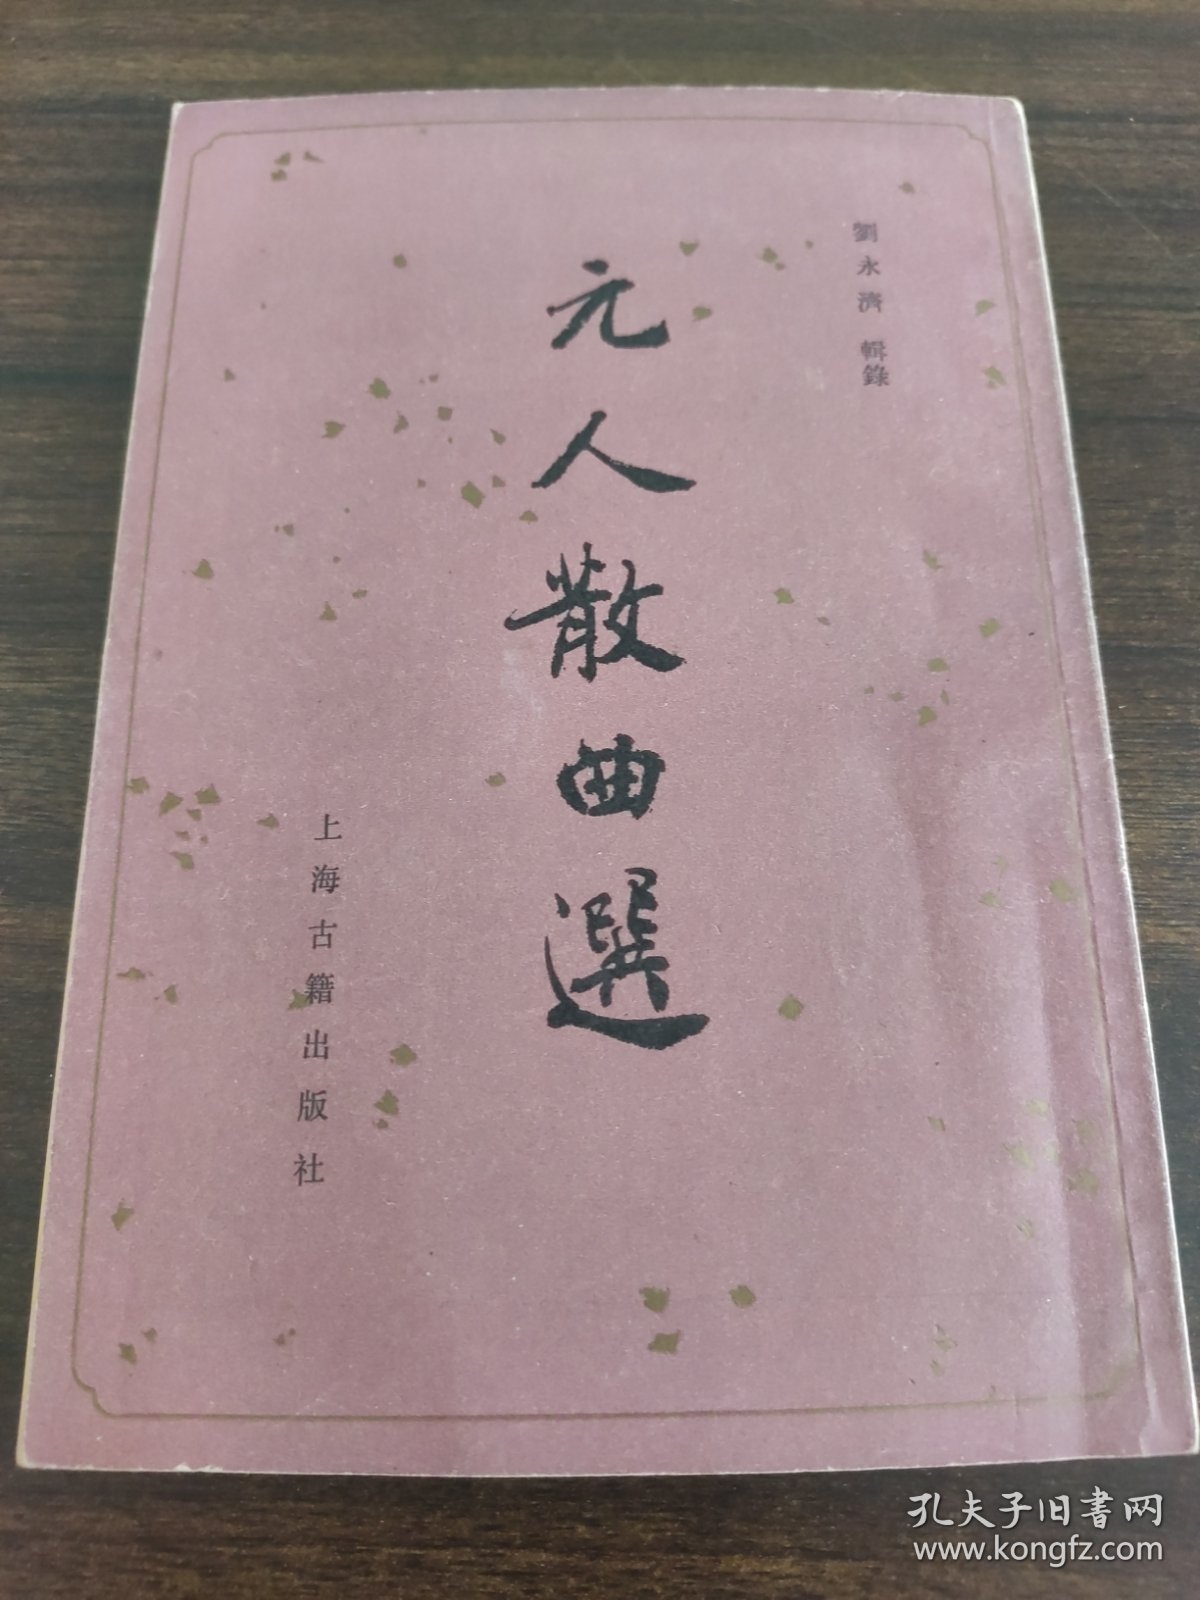 劉永濟 輯錄
元人散曲選
上海古籍出版社
孔夫子旧书网
www.kongfz.com